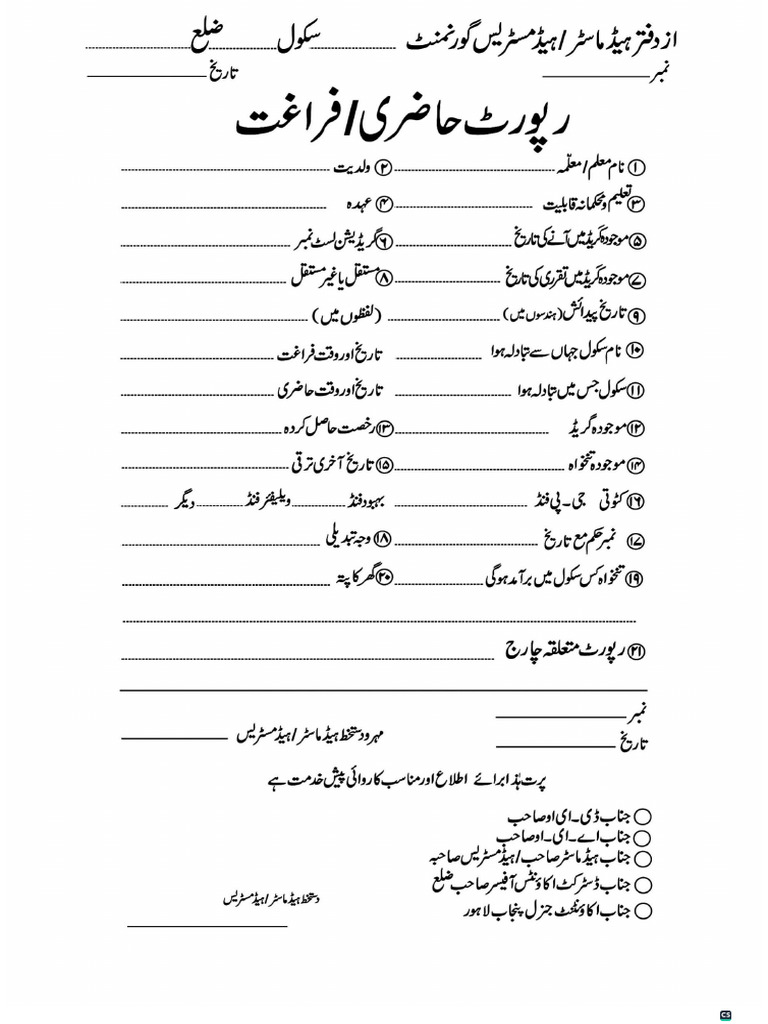 از دفتر ہیڈ ماسٹر / ہیڈ مسٹریس گورنمنٹ ........ سکول ........ ضلع ........
نمبر ________ تاریخ ________
رپورٹ حاضری / فراغت
① نام معلم / معلّمہ ........ ② ولدیت ........
③ تعلیم و محکمانہ قابلیت ........ ④ عہدہ ........
⑤ موجودہ گریڈ میں آنے کی تاریخ ........ ⑥ گریڈیشن لسٹ نمبر ........
⑦ موجودہ گریڈ میں تقرری کی تاریخ ........ ⑧ مستقل یا غیر مستقل ........
⑨ تاریخ پیدائش (ہندسوں میں) ........ (لفظوں میں) ........
⑩ نام سکول جہاں سے تبادلہ ہوا ........ تاریخ اور وقت فراغت ........
⑪ سکول جس میں تبادلہ ہوا ........ تاریخ اور وقت حاضری ........
⑫ موجودہ گریڈ ........ ⑬ رخصت حاصل کردہ ........
⑭ موجودہ تنخواہ ........ ⑮ تاریخ آخری ترقی ........
⑯ کٹوتی جی - پی فنڈ ........ بہبود فنڈ ........ ویلیفئر فنڈ ........ دیگر ........
⑰ نمبر حکم مع تاریخ ........ ⑱ وجہ تبدیلی ........
⑲ تنخواہ کس سکول میں برآمد ہوگی ........ ⑳ گھر کا پتہ ........
㉑ رپورٹ متعلقہ چارج ........
نمبر ________
تاریخ ________ مہر و دستخط ہیڈ ماسٹر / ہیڈ مسٹریس ________
پرت ہٰذا برائے اطلاع اور مناسب کاروائی پیش خدمت ہے
○ جناب ڈی - ای او صاحب
○ جناب اے - ای - او صاحب
○ جناب ہیڈ ماسٹر صاحب / ہیڈ مسٹریس صاحبہ
○ جناب ڈسٹرکٹ اکاؤنٹس آفیسر صاحب ضلع
○ جناب اکاؤنٹنٹ جنرل پنجاب لاہور
دستخط ہیڈ ماسٹر / ہیڈ مسٹریس
CS